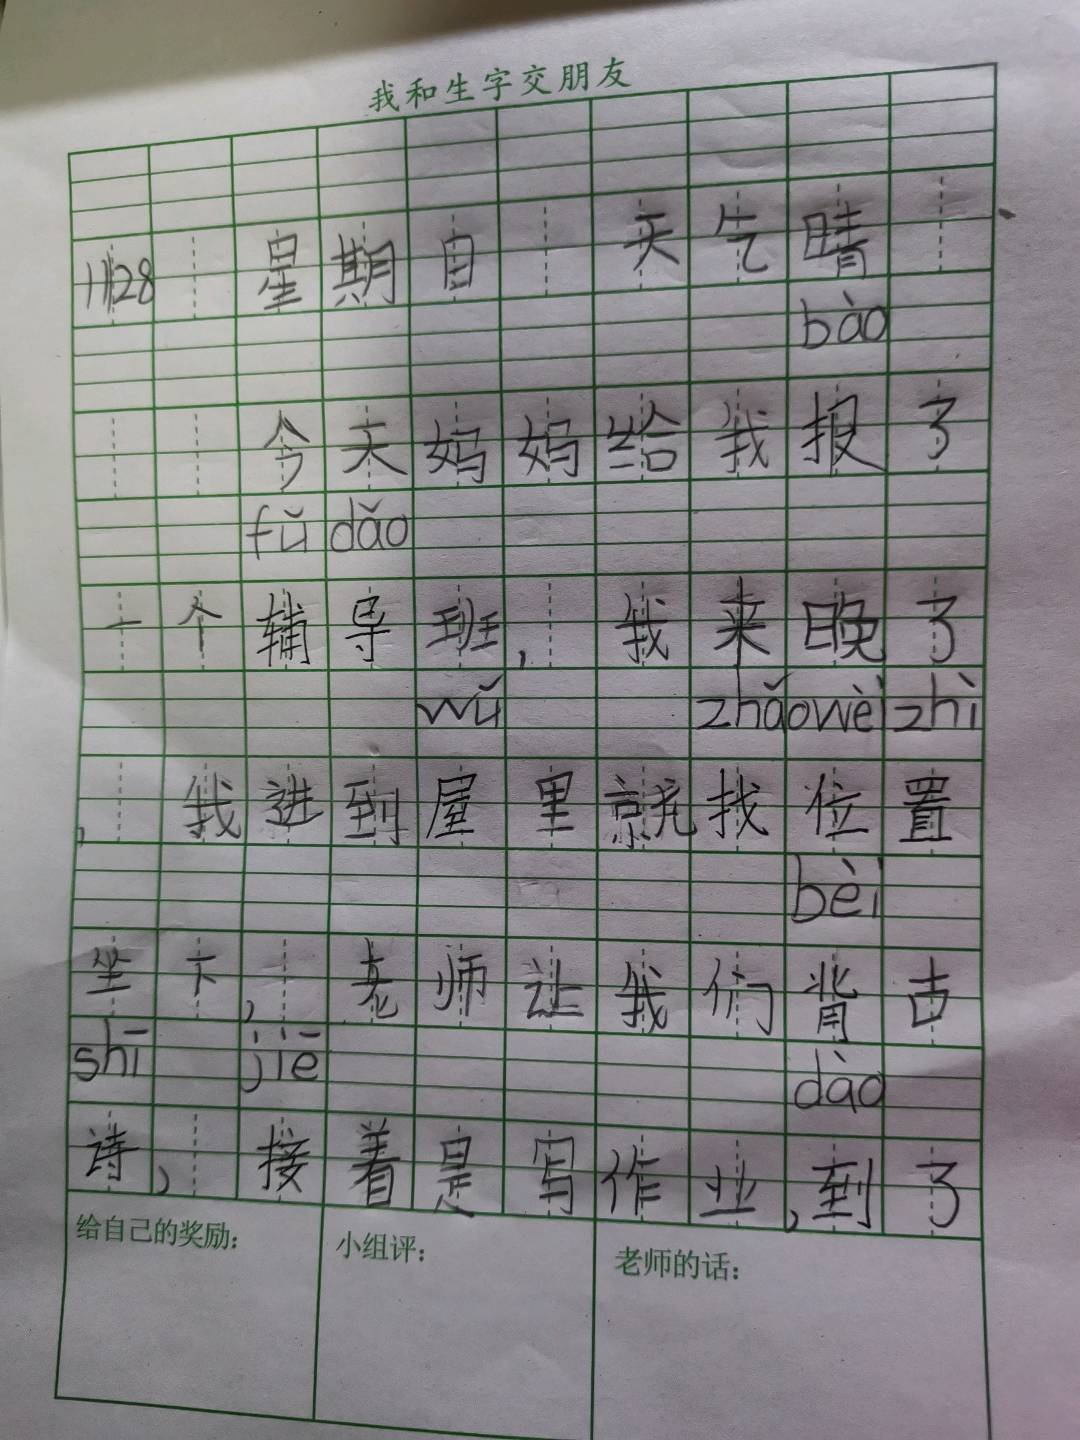 我和生字交朋友
11月28 星期日 天气晴
bào
今天妈妈给我报了
fǔ dǎo
一个辅导班, 我来晚了
wǔ zhǎo wèi zhì
, 我进到屋里就找位置
bèi
坐下, 老师让我们背古
shī jiē dào
诗, 接着是写作业,到了
给自己的奖励: 小组评: 老师的话: